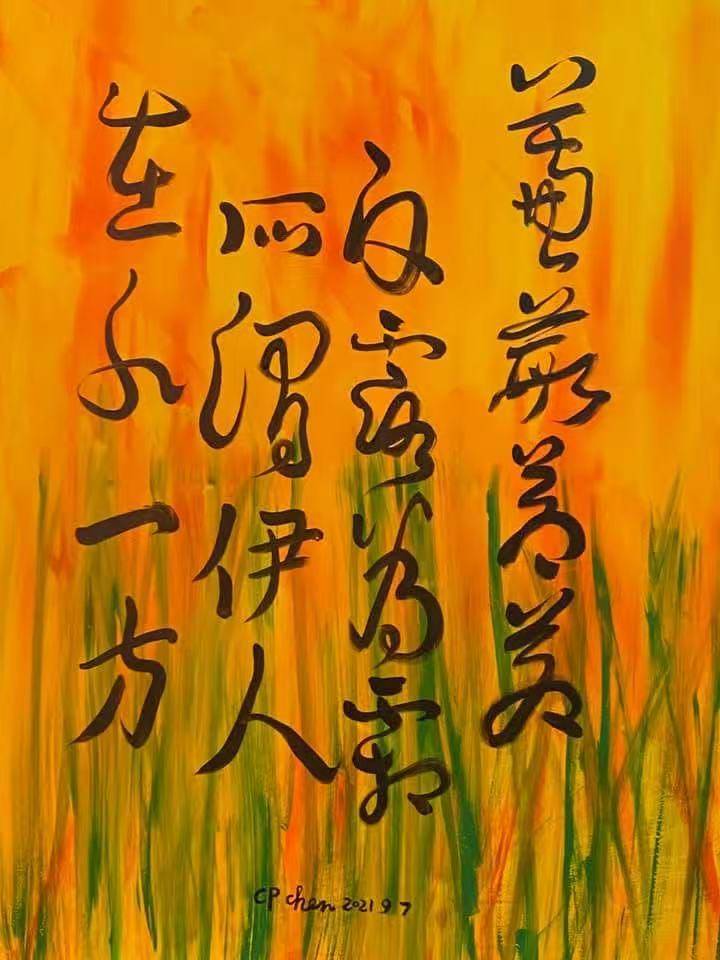 蒹葭蒼蒼
白露為霜
所謂伊人
在水一方
CP chen 2021 9 7